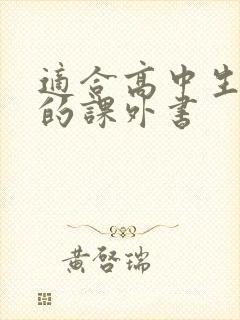 適合高中生
的課外書
黃啓瑞